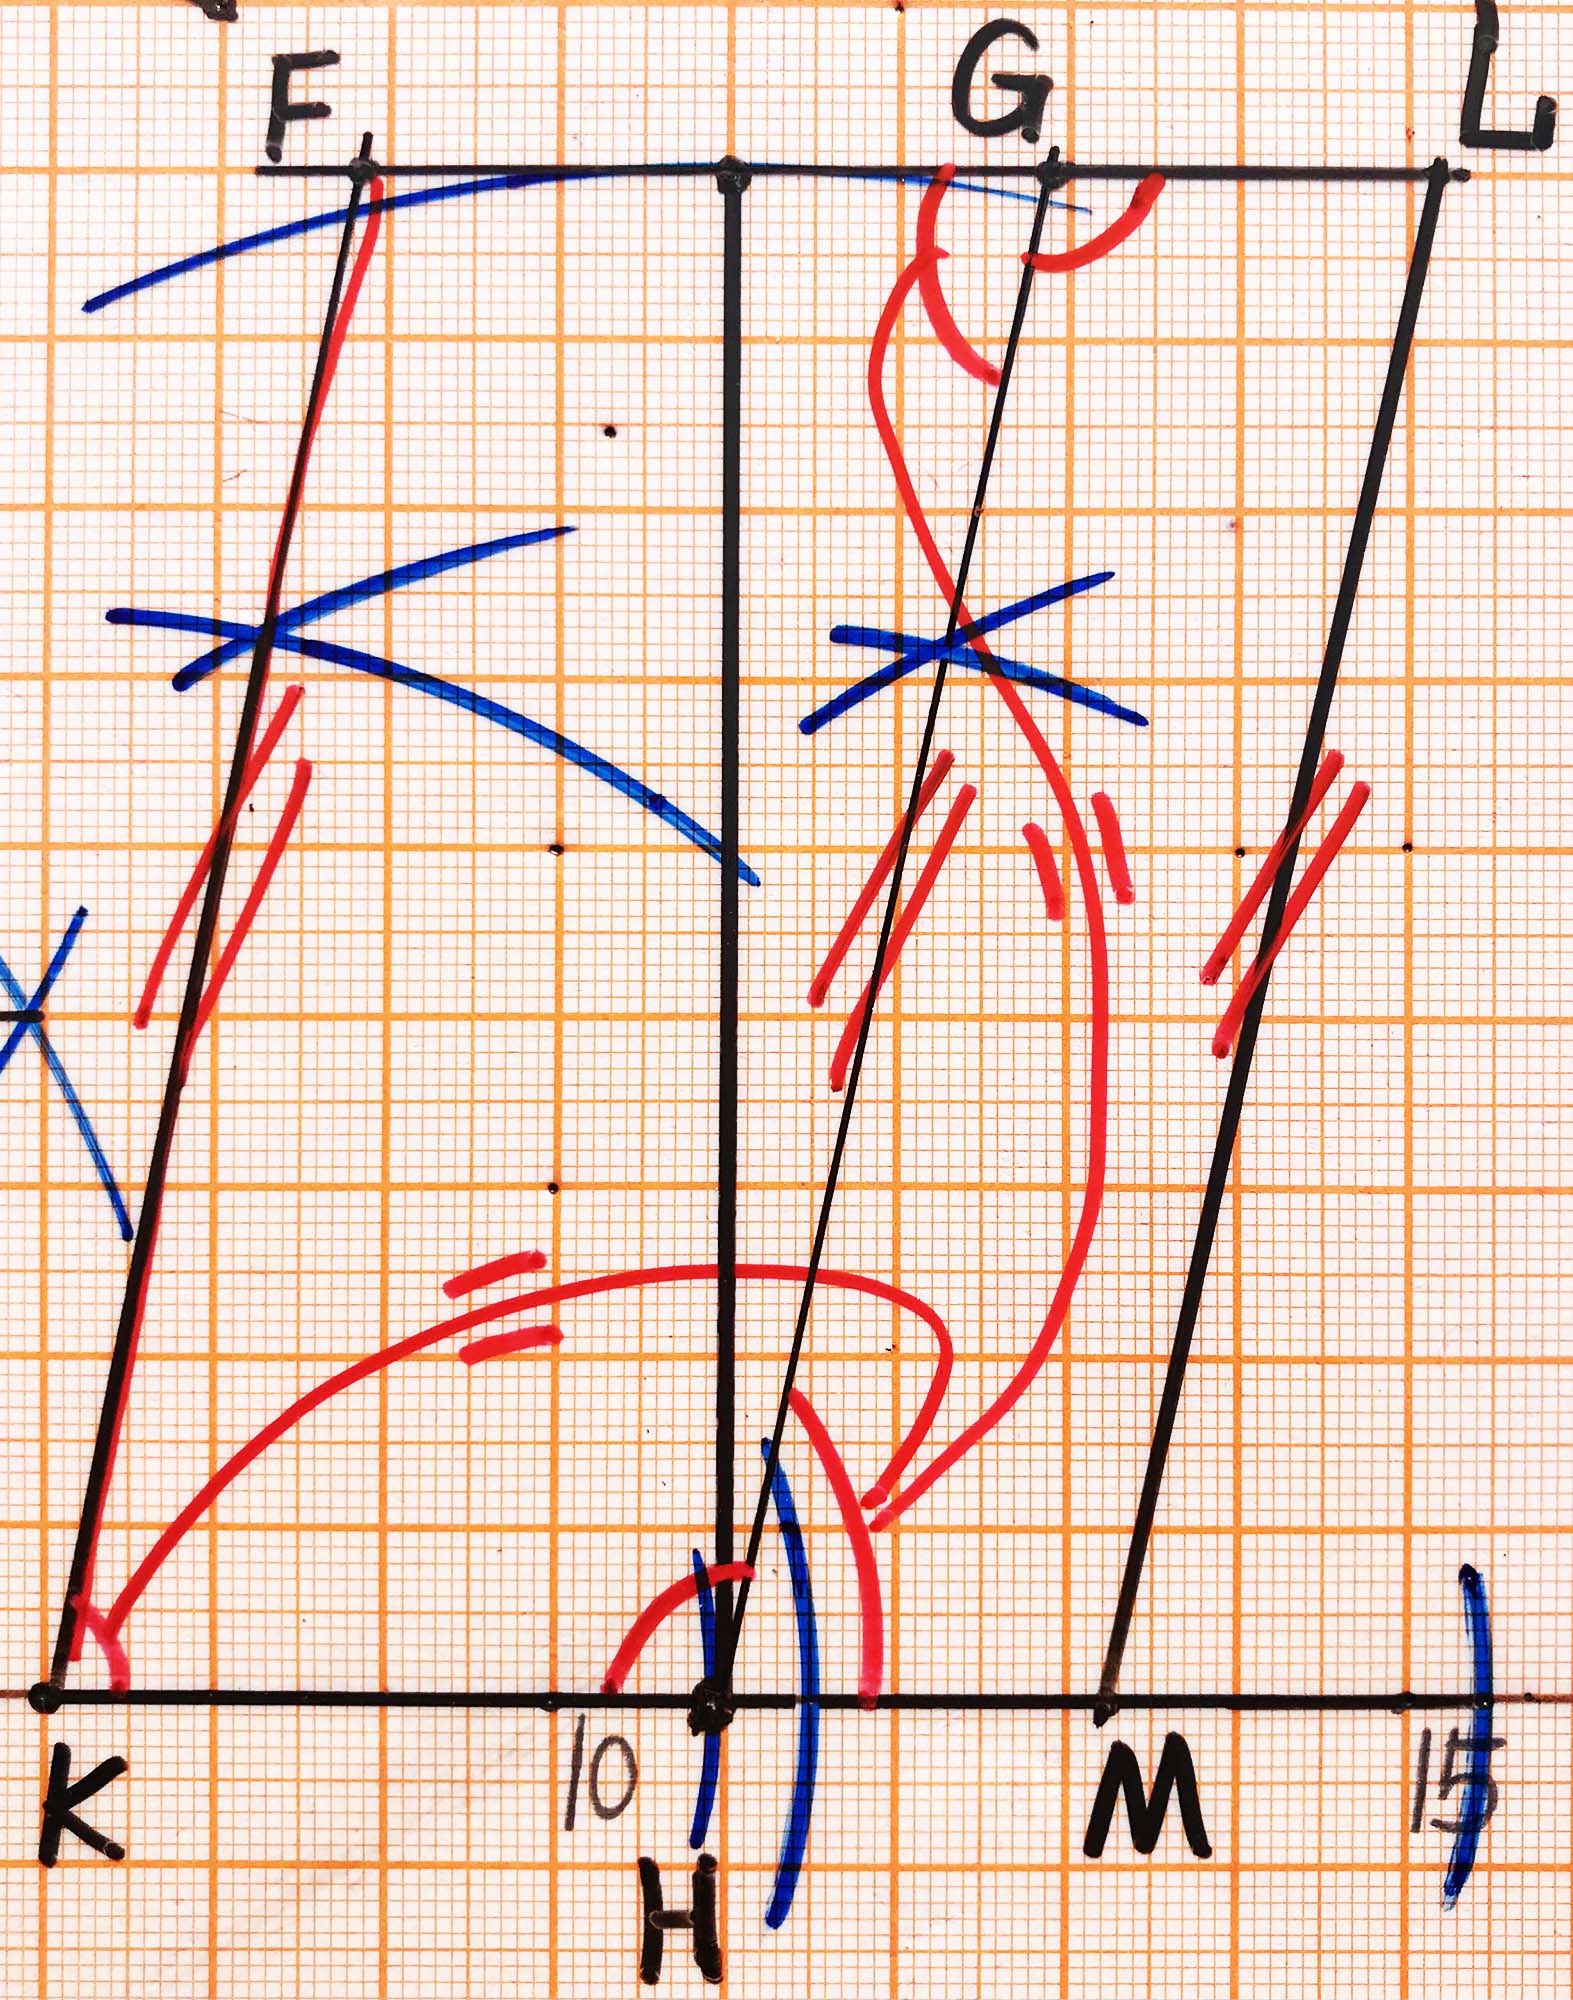 F G L
K 10 H M 15